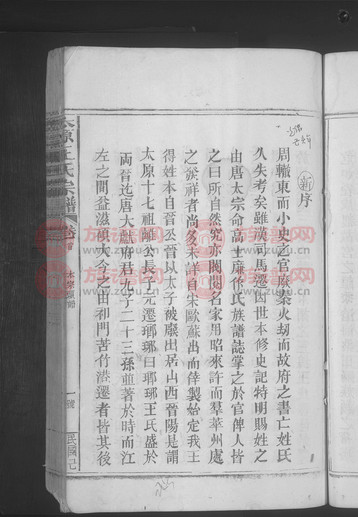 新序
周轍東而小史之官廢秦火刼而故府之書亡姓氏
久失考矣雖漢司馬遷因世本修史記特明賜姓之
由唐太宗命高士廉作氏族譜誌掌之於官俾人皆
之曰所自然究亦閥閱名家用昭來許而羣華州處
之發祥者尚多未詳自宋歐蘇出而體製始定我王
得姓本自晉公晉以太子被廢出居山西晉陽是謂
太原十七祖離公長子元遷瑯琊曰瑯琊王氏盛於
兩晉迄唐大獻府君九子二十三孫並著於時而江
左之間益滋碩大全之由和門苦竹港遷者皆其後
太原王氏宗譜
卷首
一號